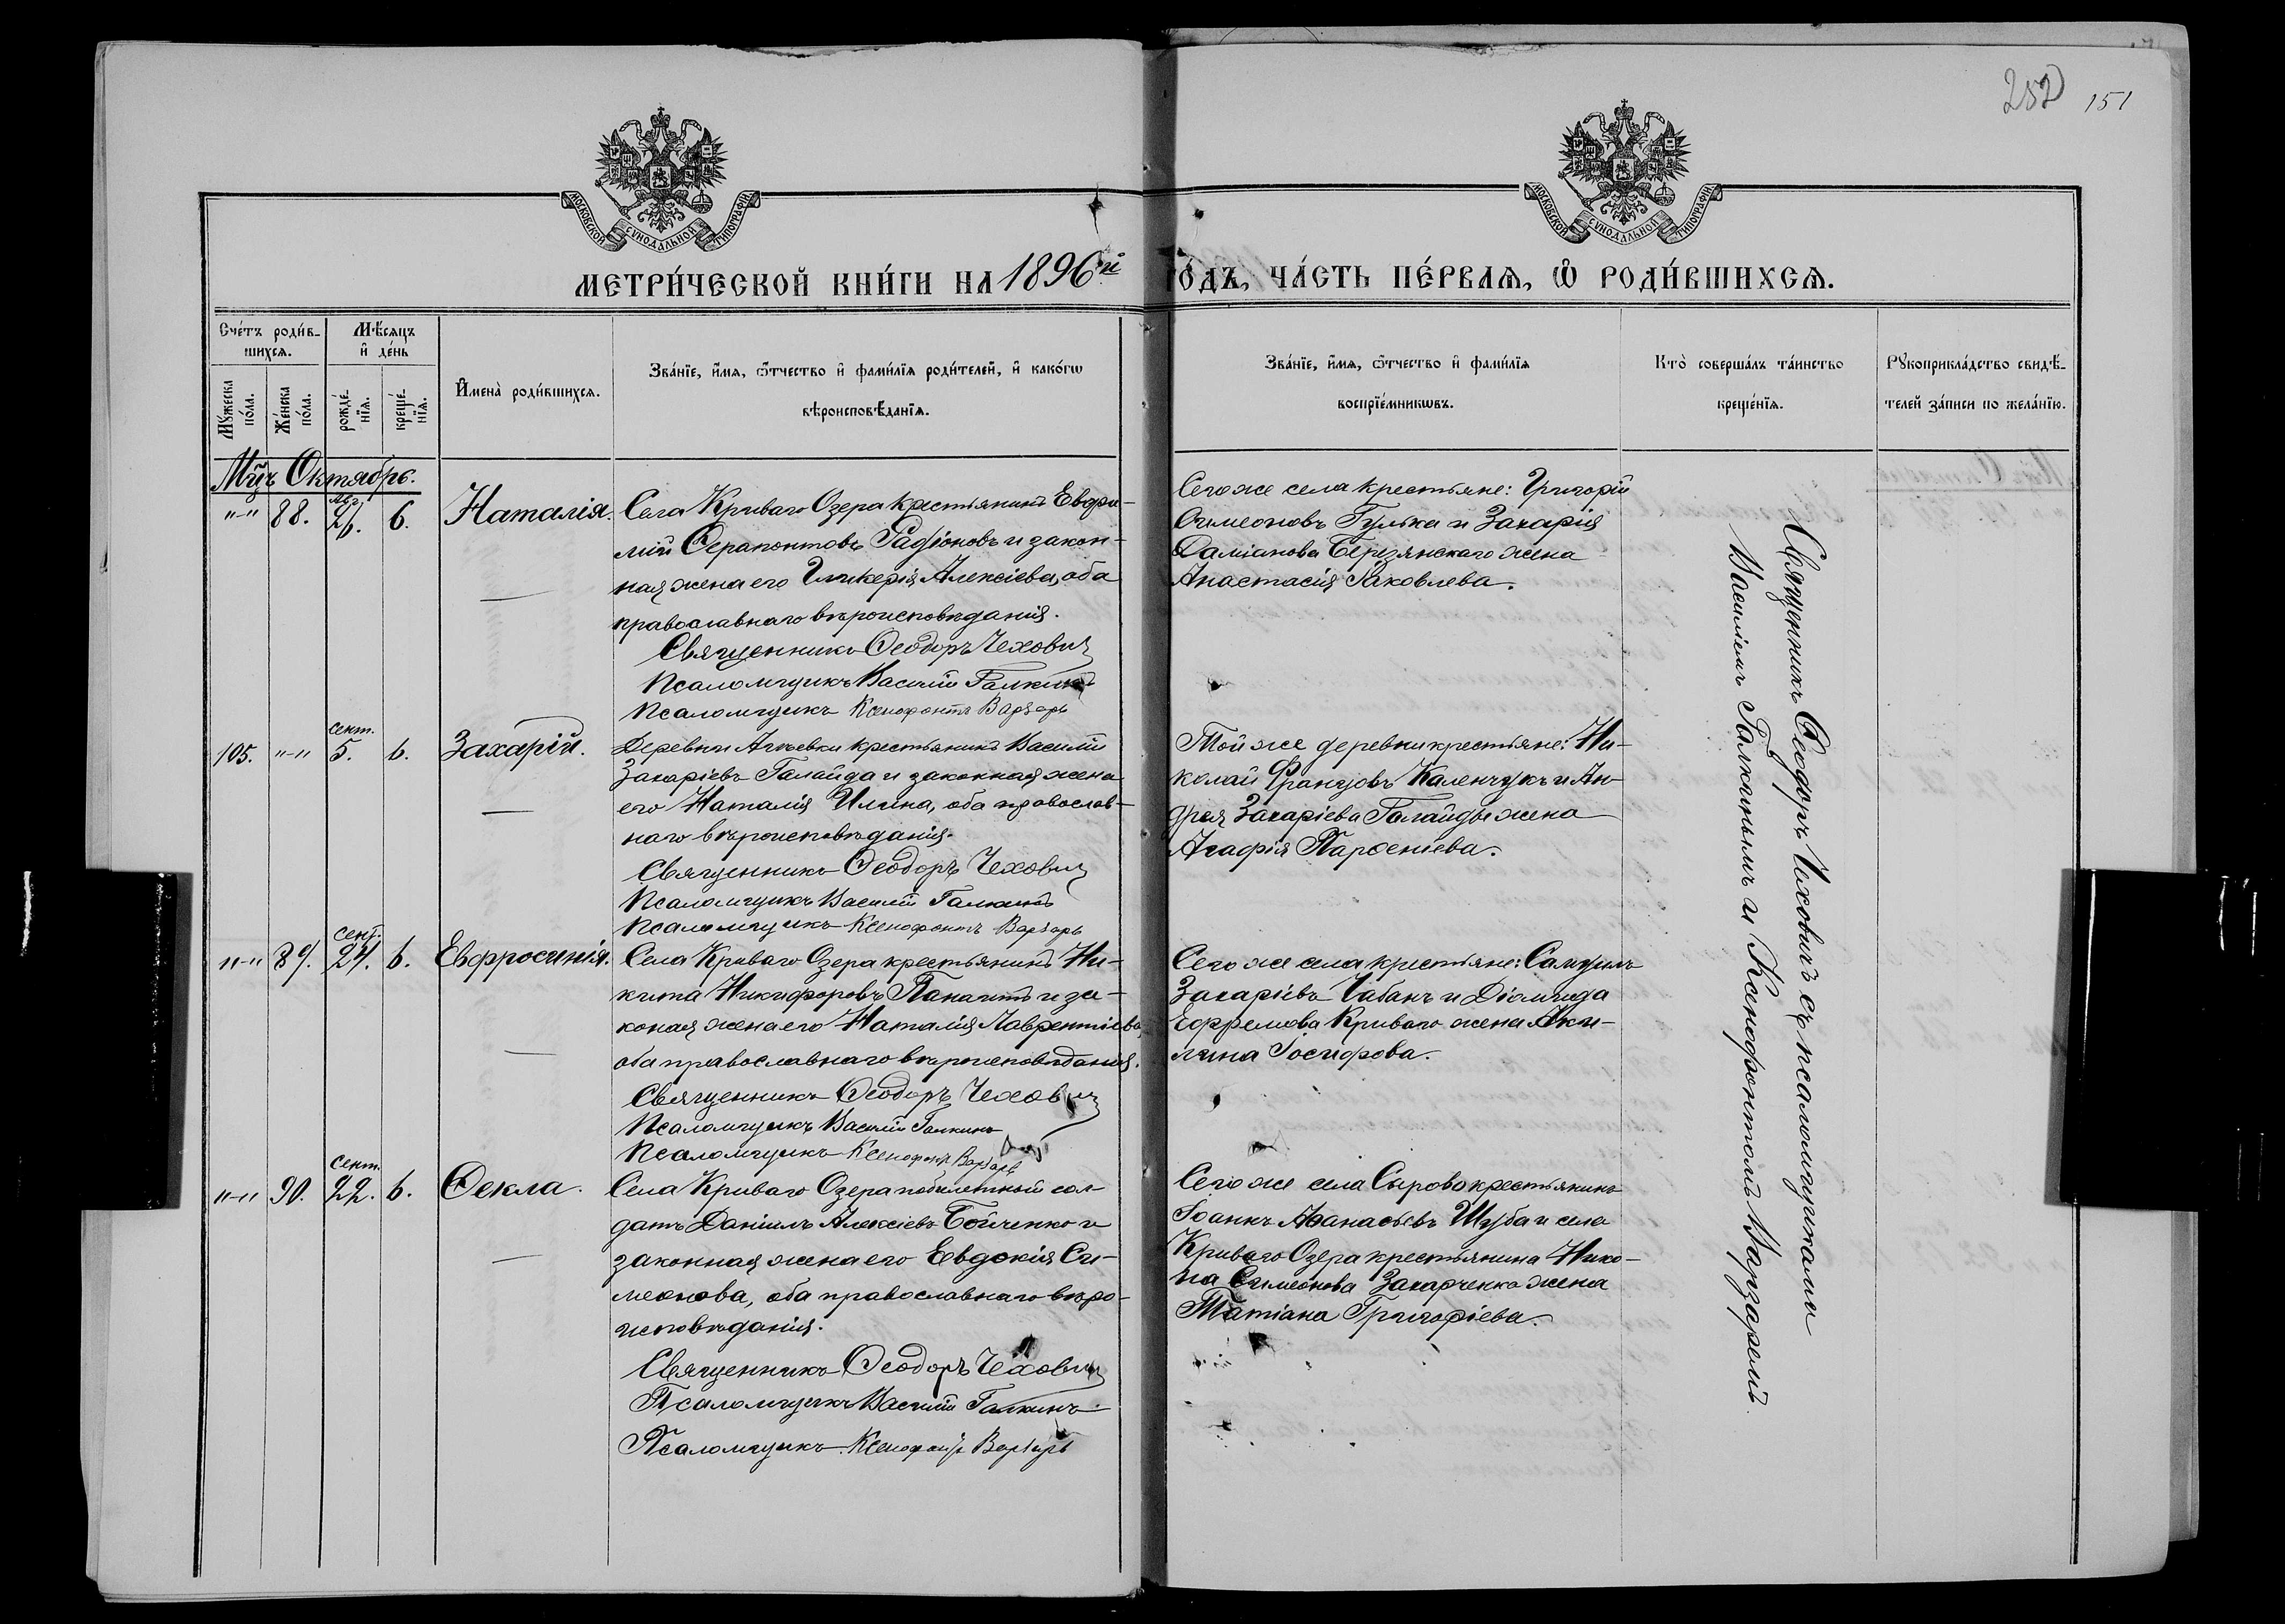 252 151
МОСКОВСКОЙ СѴНОДАЛЬНОЙ ТИПОГРАФІИ
МОСКОВСКОЙ СѴНОДАЛЬНОЙ ТИПОГРАФІИ
МЕТРИ́ЧЕСКОЙ КНИ́ГИ НА 1896й ГО́ДЪ, ЧА́СТЬ ПЕ́РВАѦ, Ѡ҆ РОДИ́ВШИХСѦ.
Сче́тъ роди́в-
шихсѧ.
Мѣ́сѧцъ
и҆ де́нь
Мꙋ́жеска
по́ла.
Же́нска
по́ла.
рожде́-
нїѧ.
креще́-
нїѧ.
И҆мена̀ роди́вшихсѧ.
Зва́нїе, и҆́мѧ, ѻ҆́тчество и҆ фами́лїѧ роди́телей, и҆ како́гѡ
вѣроисповѣ́данїѧ.
Зва́нїе, и҆́мѧ, ѻ҆́тчество и҆ фами́лїѧ
воспрїе́мникѡвъ.
Кто̀ соверша́лъ та́инство
креще́нїѧ.
Рꙋкоприкла́дство свидѣ́-
телей за́писи по жела́нїю.
Мцъ Октябрь.
"-" 88. Авг. 26. 6. Наталія.
Села Криваго Озера крестьянинъ Евфи-
мій Ѳерапонтовъ Радіоновъ и закон-
ная жена его Гликерія Алексіева, оба
православнаго вѣроисповѣданія.
Священникъ Ѳеодоръ Чехович
Псаломщикъ Василій Галкинъ
Псаломщикъ Ксенофонтъ Варзарь
Сего же села крестьяне: Григорій
Симеоновъ Гулька и Захарія
Даміанова Березянскаго жена
Анастасія Іаковлева.
105. "-" Сент. 5. 6. Захарій.
Деревни крестьянинъ Василій
Захаріевъ Галайда и законная жена
его Наталія Илина, оба православ-
наго вѣроисповѣданія.
Священникъ Ѳеодоръ Чехович
Псаломщикъ Василій Галкинъ
Псаломщикъ Ксенофонтъ Варзарь
Той же деревни крестьяне: Ни-
колай Францовъ Каленчукъ и Ан-
дрея Захаріева Галайды жена
Агафія Парѳеніева.
"-" 89. Сент. 24. 6. Евфросинія.
Села Криваго Озера крестьянинъ Ни-
кита Никифоровъ Панаитъ и за-
коная жена его Наталія Лаврентіева,
оба православнаго вѣроисповѣданія.
Священникъ Ѳеодоръ Чехович
Псаломщикъ Василій Галкинъ
Псаломщикъ Ксенофонт Варзарь
Сего же села крестьяне: Самуилъ
Захаріевъ Чабанъ и Діомида
Ефремова Криваго жена Аки-
лина Іосифова.
"-" 90. Сент. 22. 6. Ѳекла.
Села Криваго Озера побилетный сол-
датъ Даніилъ Алексіевъ Бойченко и
законная жена его Евдокія Си-
меонова, оба православнаго вѣро-
исповѣданія.
Священникъ Ѳеодоръ Чехович
Псаломщикъ Василій Галкинъ
Псаломщикъ Ксенофонт Варзарь
Сего же села Сырово крестьянинъ
Іоаннъ Аѳанасьевъ Шуба и села
Криваго Озера крестьянина Нико-
на Симеонова Захарченко жена
Татіана Григоріева.
Священникъ Ѳеодоръ Чеховичъ съ псаломщиками
Василіемъ Галкинымъ и Ксенофонтомъ Варзаремъ.